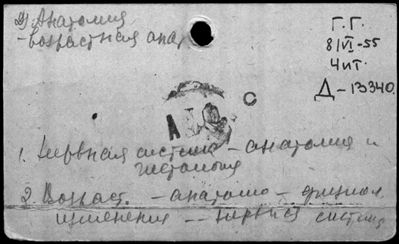 Анатомия
-возрастная анат
Г.Г.
8/VI-55
Чит.
Д-13340.
С
1. Нервная система - анатомия и
гистология
2. Возраст. - анатомо - функцион.
изменения -- нервн. система